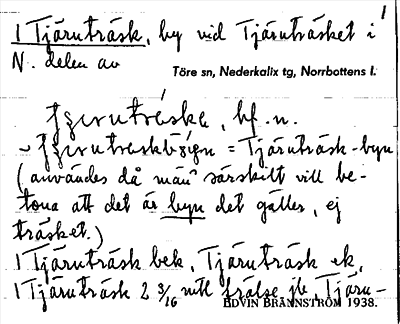 1 Tjärnträsk, by vid Tjärnträsket i
N. delen av
Töre sn, Nederkalix tg, Norrbottens l.
bf. n.
= Tjärnträsk-byn
(användes då man särskilt vill be-
tona att det är byn det gäller, ej
träsket.)
1 Tjärnträsk bek, Tjärnträsk ek,
1 Tjärnträsk 2 3/16 mtl frälse jb Tjärn-
EDVIN BRÄNNSTRÖM 1938.